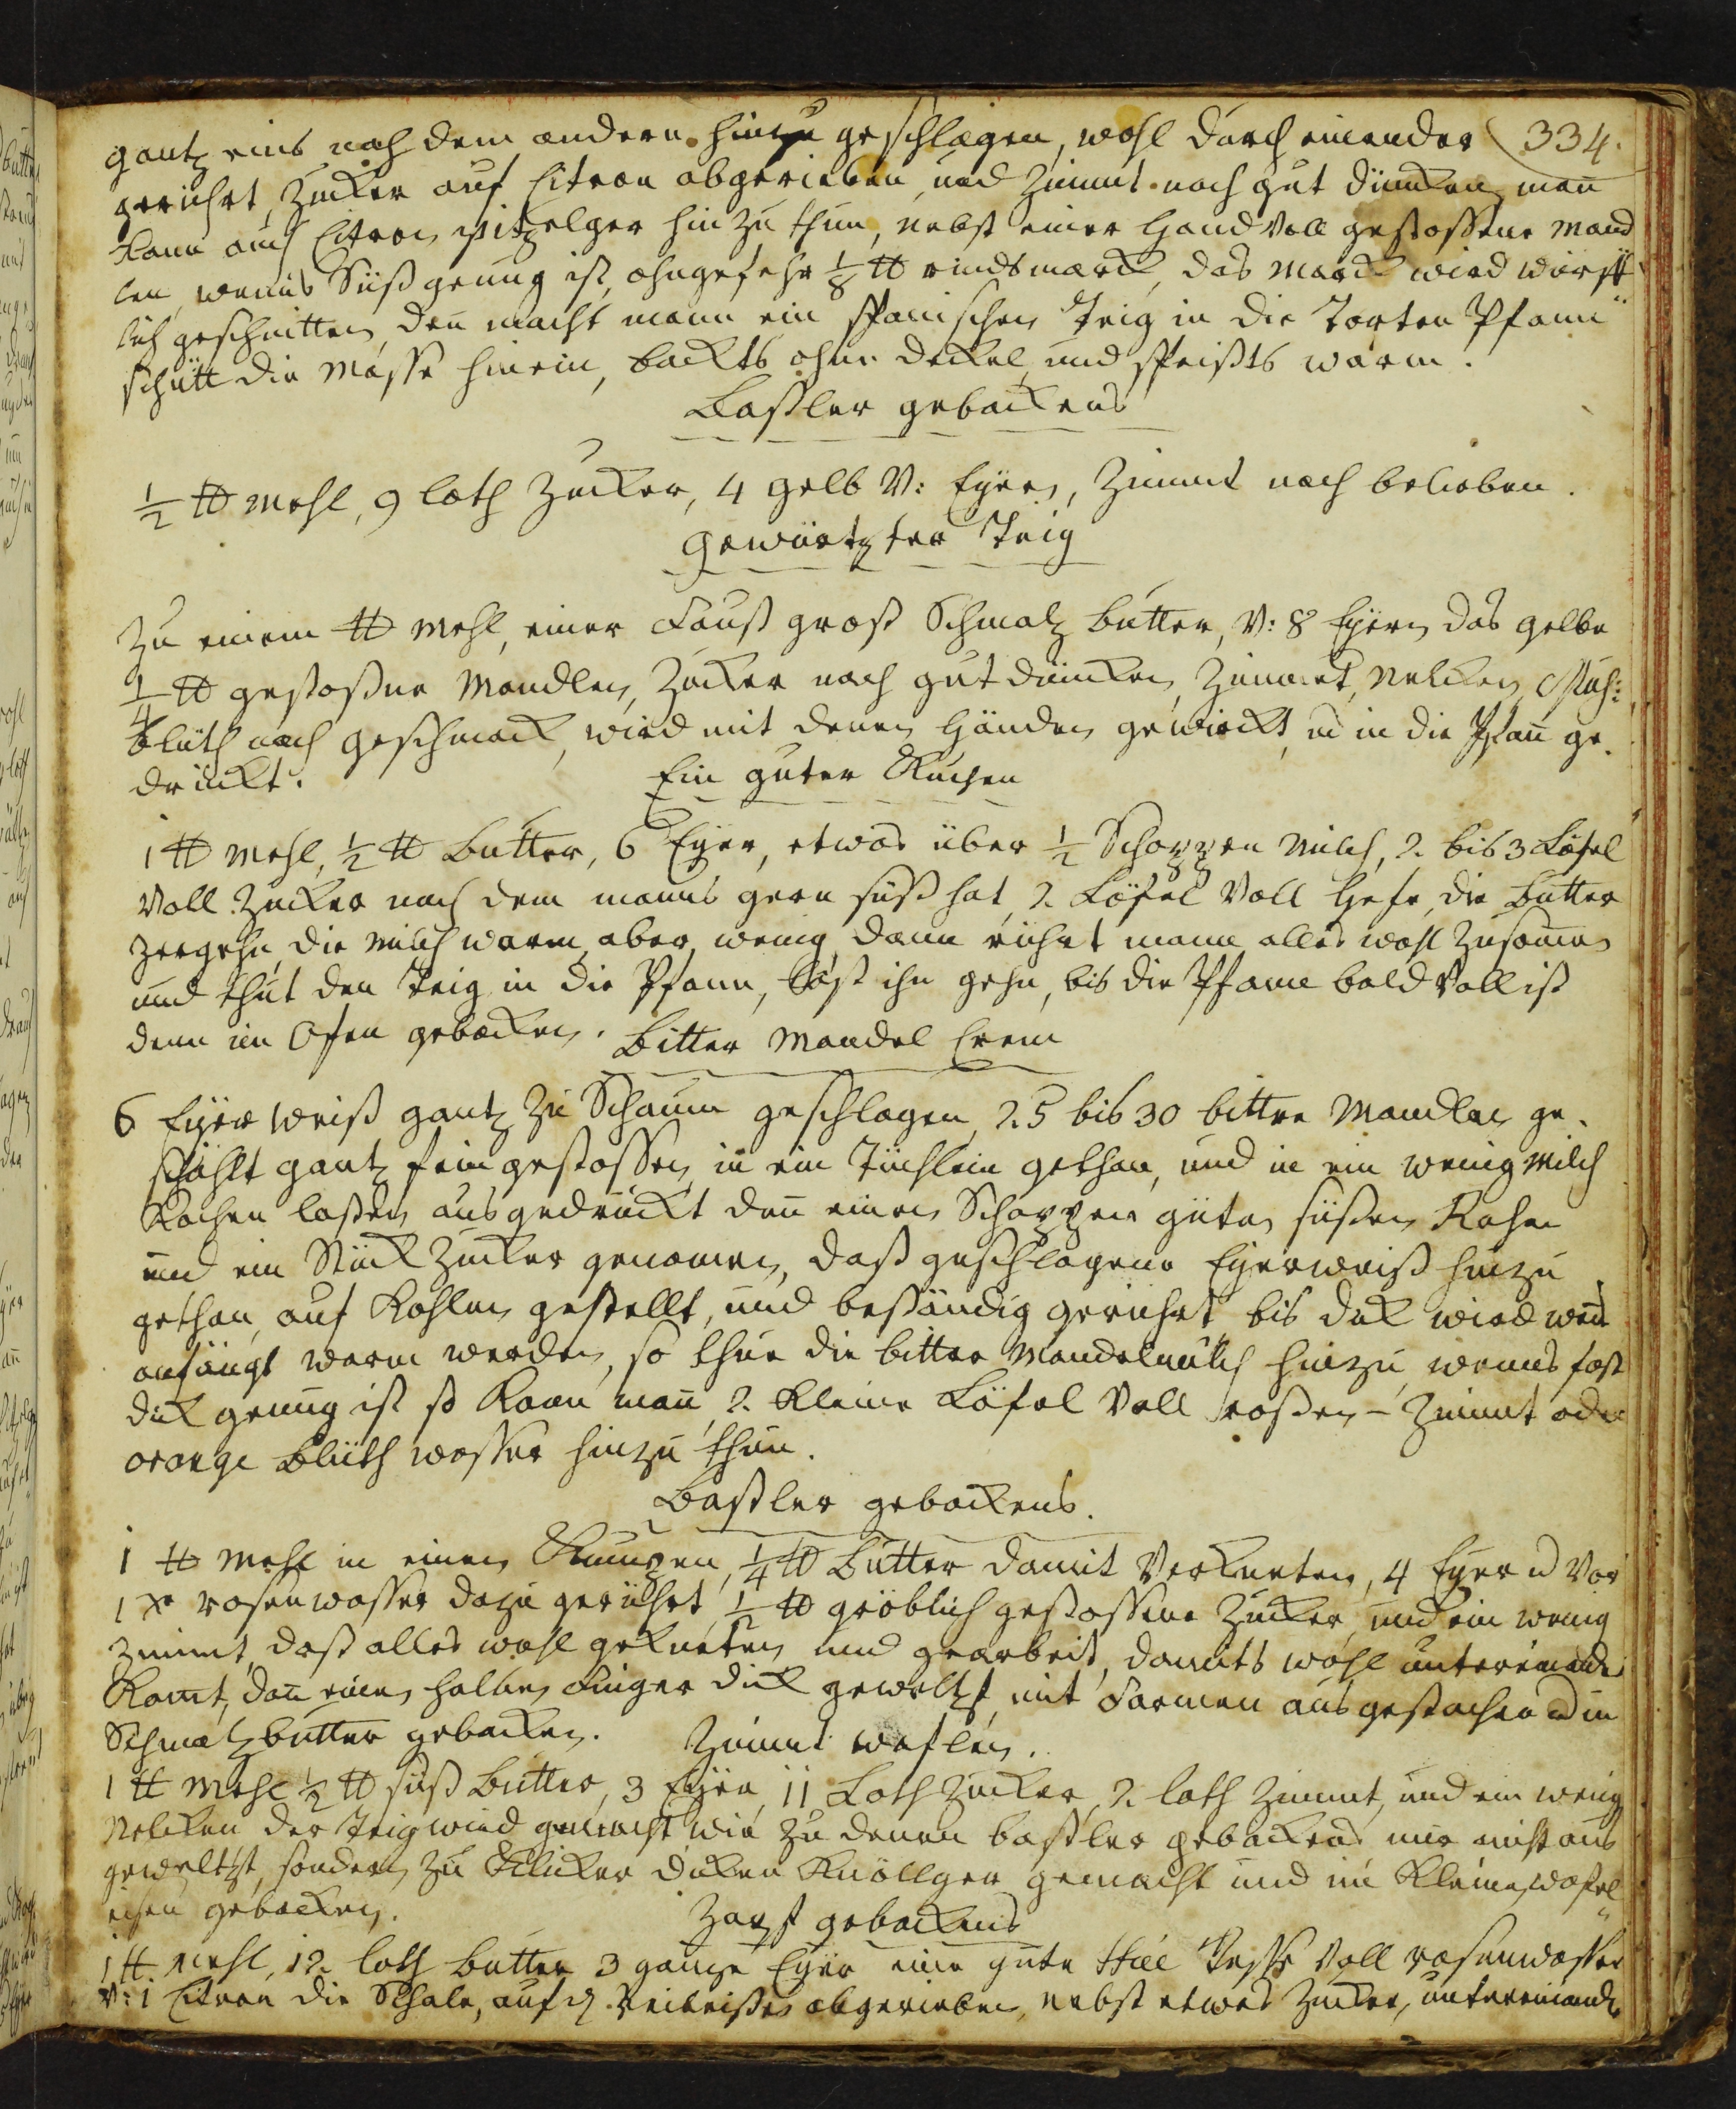 gantz eins nach dem andern hinzu geschlagen, wohl durch einander 334.
gerührt, Zucker auf Citron abgerieben und Zimmt nach gut düncken man
kann auch Citron hinzu thun, nebst einer Hand Voll gestossene Mand
len, wenns Süß genug ist, ohngefehr 1/8 ℔ rindsmarck, das Marck wird würff
lich geschnitten, den macht mann ein spanischen Teig in die Torten Pfann
schütt die Masse hinein, backts ohne deckel und speißts warm.
Baßler gebackens
1/2 ℔ Mehl, 9 loth Zucker, 4 gelb V: Eyern, Zimmt nach belieben.
Gewürtzter Teig
Zu einem ℔ Mehl, einer Faust groß Schmaltz butter, V: 8 Eyern das gelbe
1/4 ℔ gestoßne Mandlen, Zucker nach gut düncken, Zimmet, Nelcken, Musc:
blüth nach geschmack, wird mit denen Händen gewirckt, u in die Pfan̄ ge
drückt.
Ein guter Kuchen
1 ℔ Mehl, 1/2 ℔ Butter, 6 Eyer, etwas über 1/2 Schoppen Milch, 2. bis 3 Löfel
Voll Zucker nach dem manns gern süß hat, 2. Löfel Voll Hefe, die Butter
zergehn, die Milch warm, aber wenig, dann rührt mann alles wohl Zusamen
und thut den Teig in die Pfann, läst ihn gehn, bis die Pfanne bald Voll ist
denn im Ofen gebacken.
Bitter Mandel Crem
6 Eyer weiß gantz zu Schaum geschlagen, 25 bis 30 bittre Mandlen ge
schählt gantz fein gestossen, in ein Tüchlein gethan, und in ein wenig Milch
Kochen laßen, ausgedruckt dan̄ einen Schoppen guten süßen Rahm
und ein Stück Zucker genomen, daß geschlagene Eyerweiß hinzu
gethan, auf Kohlen gestellt, und beständig gerührt bis dick wird
anfängt warm werden, so thue die bitter Mandelmilch hinzu, wenns fast
dick genug ist so kann man̄ 2. kleine Löfel Voll roßen- Zimmt oder
orange Blüth wasser hinzu thun.
Baßler gebackens.
1 ℔ Mehl in einen Kumpen, 1/4 ℔ Butter damit Verkneten, 4 Eyer u Vor
1 xr rosenwasser dazu gerührt, 1/2 ℔ gröblich gestossene Zucker, und ein wenig
Zimmt, daß alles wohl gekneten und gearbeit, damits wohl untereinander
Komt, dan̄ einen halben Finger dick gewältzt, mit Formen ausgestochen u in
Schmaltzbutter gebacken.
Zimmt waflen.
1 ℔ Mehl 1/2 ℔ süß Butter, 3 Eyer, 11 Loth Zucker, 2. loth Zimmt, und ein wenig
Nelcken der Teig wird gemacht wie zu denen baßler gebackens nur nicht aus
gewältzt, sondern zu Klicker dicken Knöllger gemacht und im kleinen wafel
eisen gebacken.
Zapf gebackens
1 ℔ Mehl, 12. loth butter 3 gantze Eyer eine gute Voll rosenwasser
V: 1 Citron die Schale, auf abgerieben, nebst etwas Zucker, untereinander